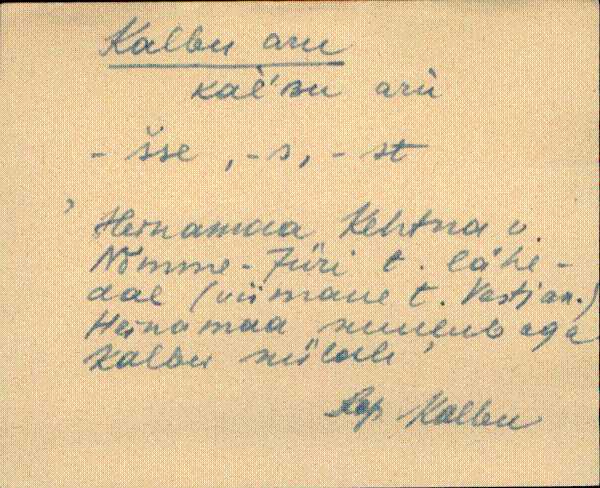 Kalbu aru
kal̀'ʙu arù
- šse, -s, - st
' Heinamaa Kehtna v.
Nõmme-Jüri t. lähe-
dal (viimane t. Vastjan.)
Heinamaa kuulub aga
Kalbu külale '
Kalbu